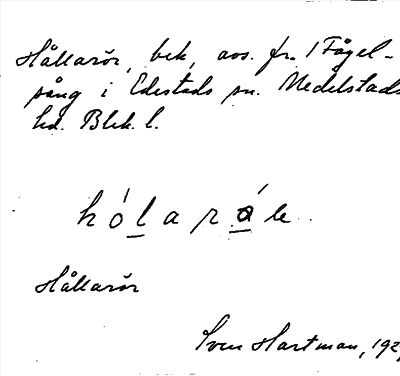 Hållarör, bek, avs. fr. 1 Fågel-
sång i Edestads sn. Medelstads
hd. Blek. l.
hólaróle
Hållarör
Sven Hartman, 192